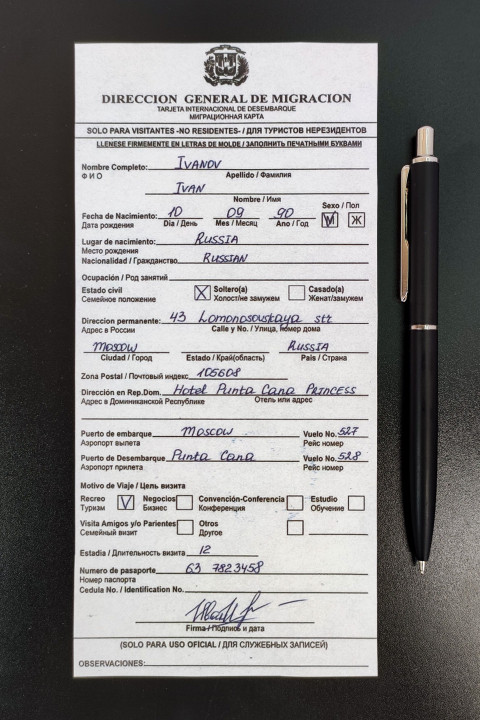 DIRECCION GENERAL DE MIGRACION
TARJETA INTERNACIONAL DE DESEMBARQUE
МИГРАЦИОННАЯ КАРТА
SOLO PARA VISITANTES -NO RESIDENTES- / ДЛЯ ТУРИСТОВ НЕРЕЗИДЕНТОВ
LLENESE FIRMEMENTE EN LETRAS DE MOLDE / ЗАПОЛНИТЬ ПЕЧАТНЫМИ БУКВАМИ
Nombre Completo: IVANOV
Ф И О Apellido / Фамилия
IVAN
Nombre / Имя
Sexo / Пол
Fecha de Nacimiento: 10 09 90 M Ж
Дата рождения Dia / День Mes / Месяц Ano / Год
Lugar de nacimiento: RUSSIA
Место рождения
Nacionalidad / Гражданство RUSSIAN
Ocupación / Род занятий
Estado civil X Soltero(a) Casado(a)
Семейное положение Холост/не замужем Женат/замужем
Direccion permanente: 43 Lomonosovskaya str
Адрес в России Calle y No. / Улица, номер дома
MOSCOW RUSSIA
Ciudad / Город Estado / Край(область) Pais / Страна
Zona Postal / Почтовый индекс 105608
Dirección en Rep.Dom. Hotel Punta Cana PRINCESS
Адрес в Доминиканской Республике Отель или адрес
Puerto de embarque MOSCOW Vuelo No. 527
Аэропорт вылета Рейс номер
Puerto de Desembarque Punta Cana Vuelo No. 528
Аэропорт прилета Рейс номер
Motivo de Viaje / Цель визита
Recreo V Negocios Convención-Conferencia Estudio
Туризм Бизнес Конференция Обучение
Visita Amigos y/o Parientes Otros
Семейный визит Другое
Estadia / Длительность визита 12
Numero de pasaporte 63 7823458
Номер паспорта
Cedula No. / Identification No.
Firma / Подпись и дата
(SOLO PARA USO OFICIAL / ДЛЯ СЛУЖЕБНЫХ ЗАПИСЕЙ)
OBSERVACIONES: